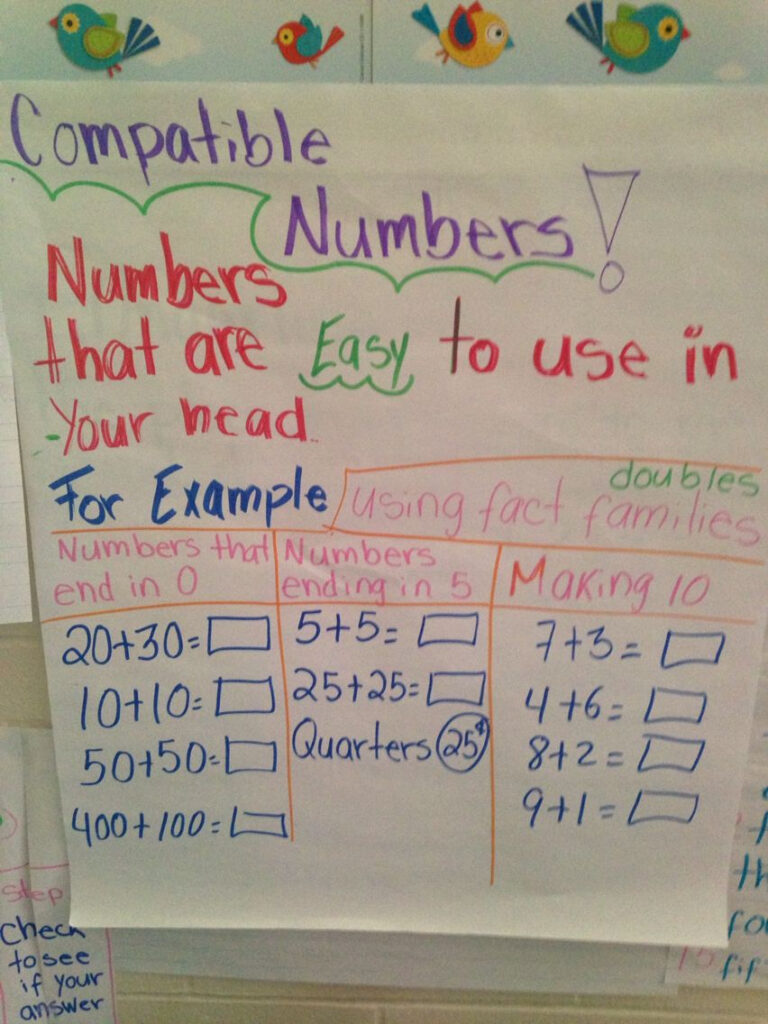 Compatible
Numbers!
Numbers
that are Easy to use in
your head.
For Example
doubles
using fact families
Numbers that
end in 0
20+30=
10+10=
50+50=
400+100=
Numbers
ending in 5
5+5=
25+25=
Quarters 25¢
Making 10
7+3=
4+6=
8+2=
9+1=
step
Check
to see
if your
answer
th
fo
15 fif